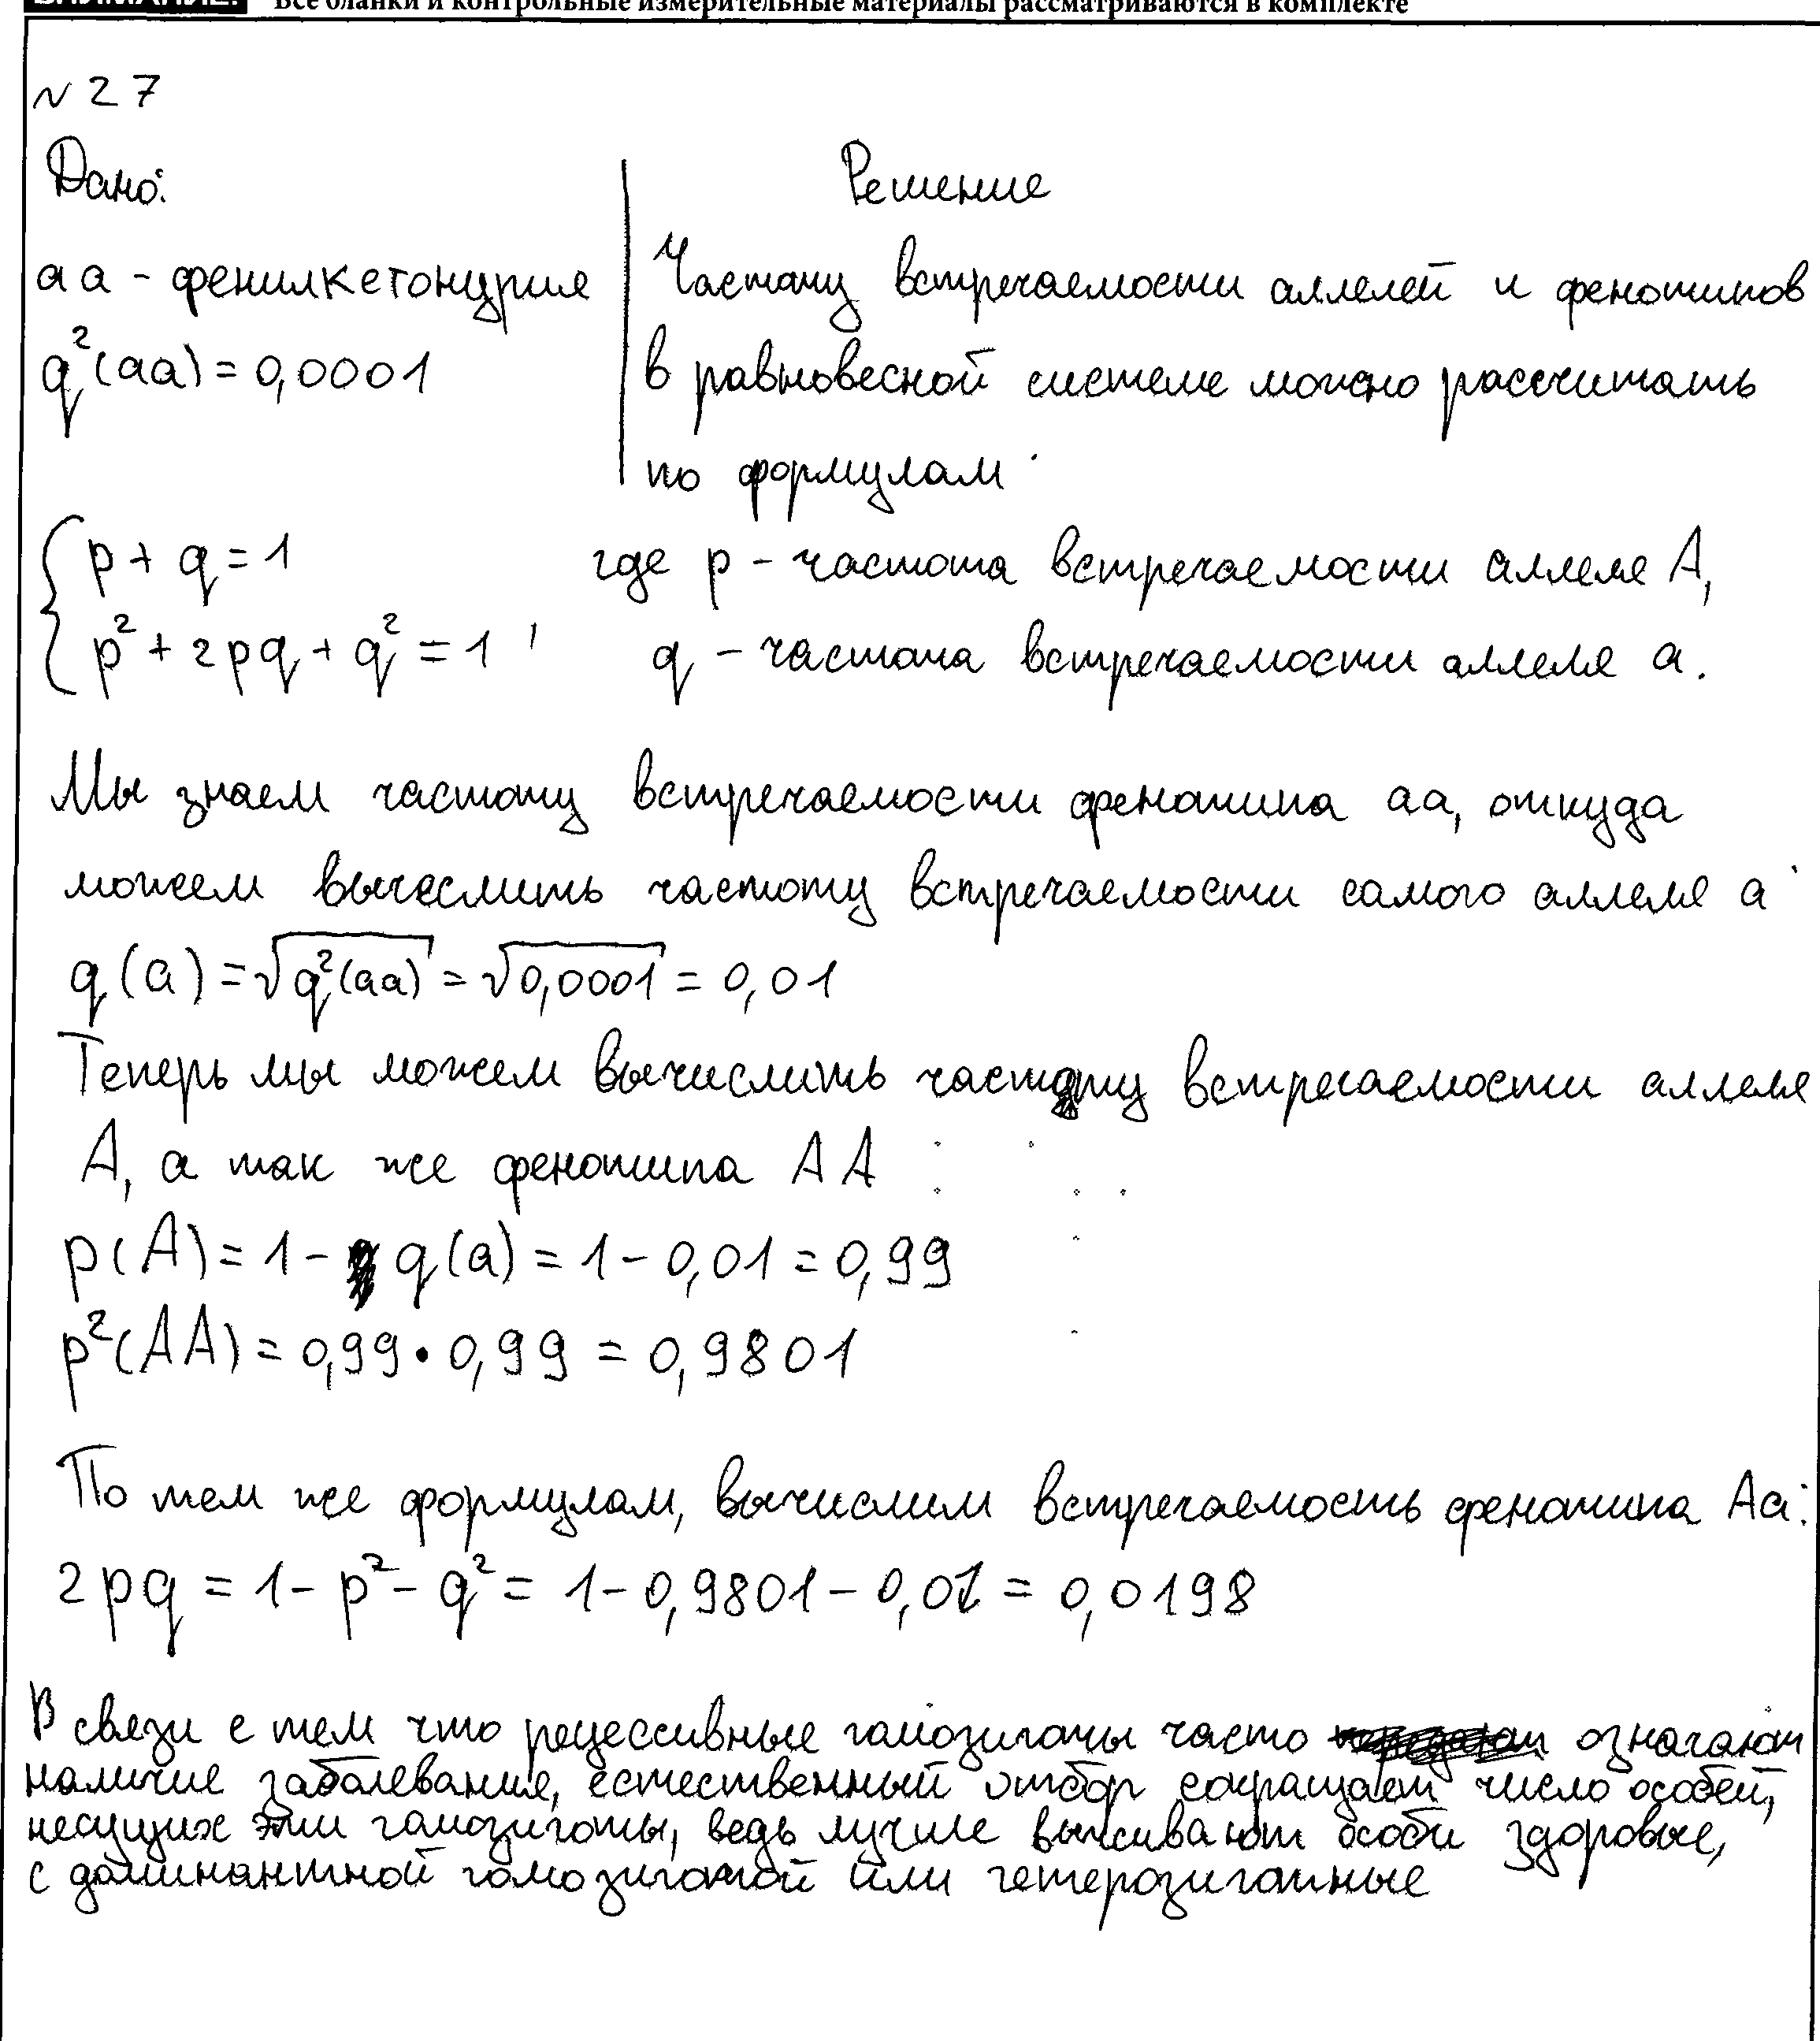 Все бланки и контрольные измерительные материалы рассматриваются в комплекте
№ 27
Дано: Решение
аа - фенилкетонурия Частоту встречаемости аллелей и фенотипов
q²(аа) = 0,0001 в равновесной системе можно рассчитать
по формулам
p + q = 1 где p - частота встречаемости аллеля А,
p² + 2pq + q² = 1 , q - частота встречаемости аллеля а.
Мы знаем частоту встречаемости фенотипа аа, откуда
можем вычеслить частоту встречаемости самого аллеля а
q(a) = √q²(аа) = √0,0001 = 0,01
Теперь мы можем вычислить частоту встречаемости аллеля
А, а так же фенотипа АА :
p(А) = 1 - q(a) = 1 - 0,01 = 0,99
p²(АА) = 0,99 • 0,99 = 0,9801
По тем же формулам, вычислим встречаемость фенотипа Аа:
2pq = 1 - p² - q² = 1 - 0,9801 - 0,01 = 0,0198
В связи с тем что рецессивные гомозиготы часто означают
наличие заболевания, естественный отбор сокращает число особей,
несущих эти гомозиготы, ведь лучше выживают особи здоровые,
с доминантной гомозиготой или гетерозиготные